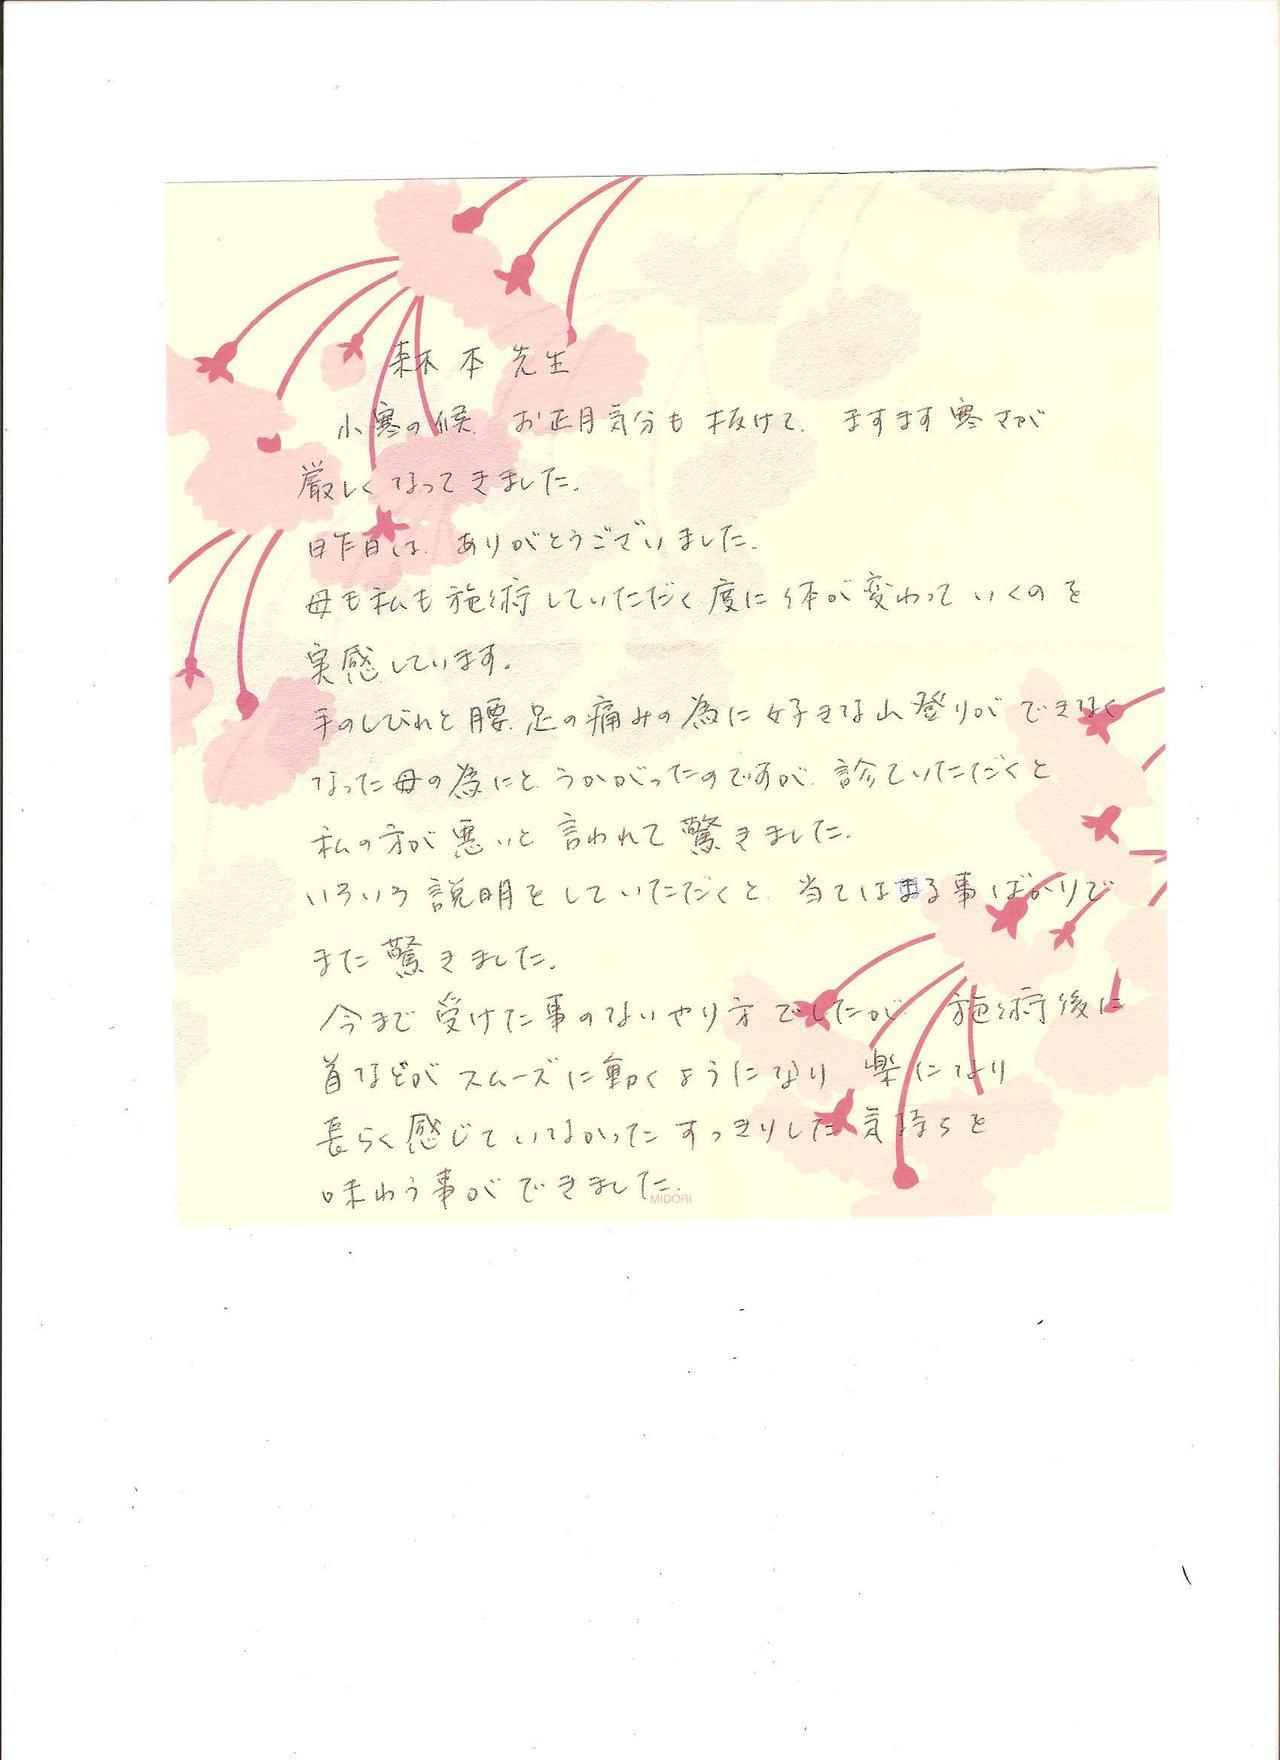 森本先生
小寒の候 お正月気分も抜けて、ますます寒さが
厳しくなってきました。
昨日は、ありがとうございました。
母も私も施術していただく度に体が変わっていくのを
実感しています。
手のしびれと腰、足の痛みの為に好きな山登りができなく
なった母の為にと、うかがったのですが、診ていただくと
私の方が悪いと言われて驚きました。
いろいろ説明をしていただくと、当てはまる事ばかりで
また驚きました。
今まで受けた事のないやり方でしたが、施術後に
首などがスムーズに動くようになり 楽になり
長らく感じていなかったすっきりした気持ちを
味わう事ができました。
MIDORI